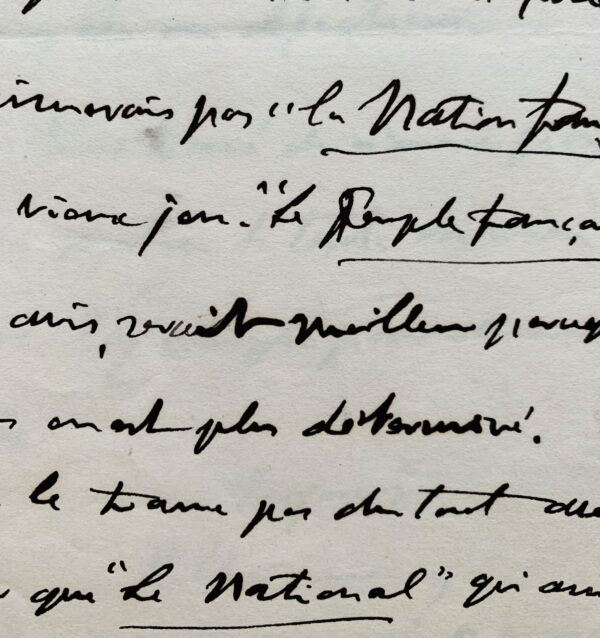 imerais pas "la Nation fran
vieux jeu. "Le Peuple françа
avis, serait meilleur parce
s en est plus déterminé.
le trouve pas du tout
que "Le National" qui